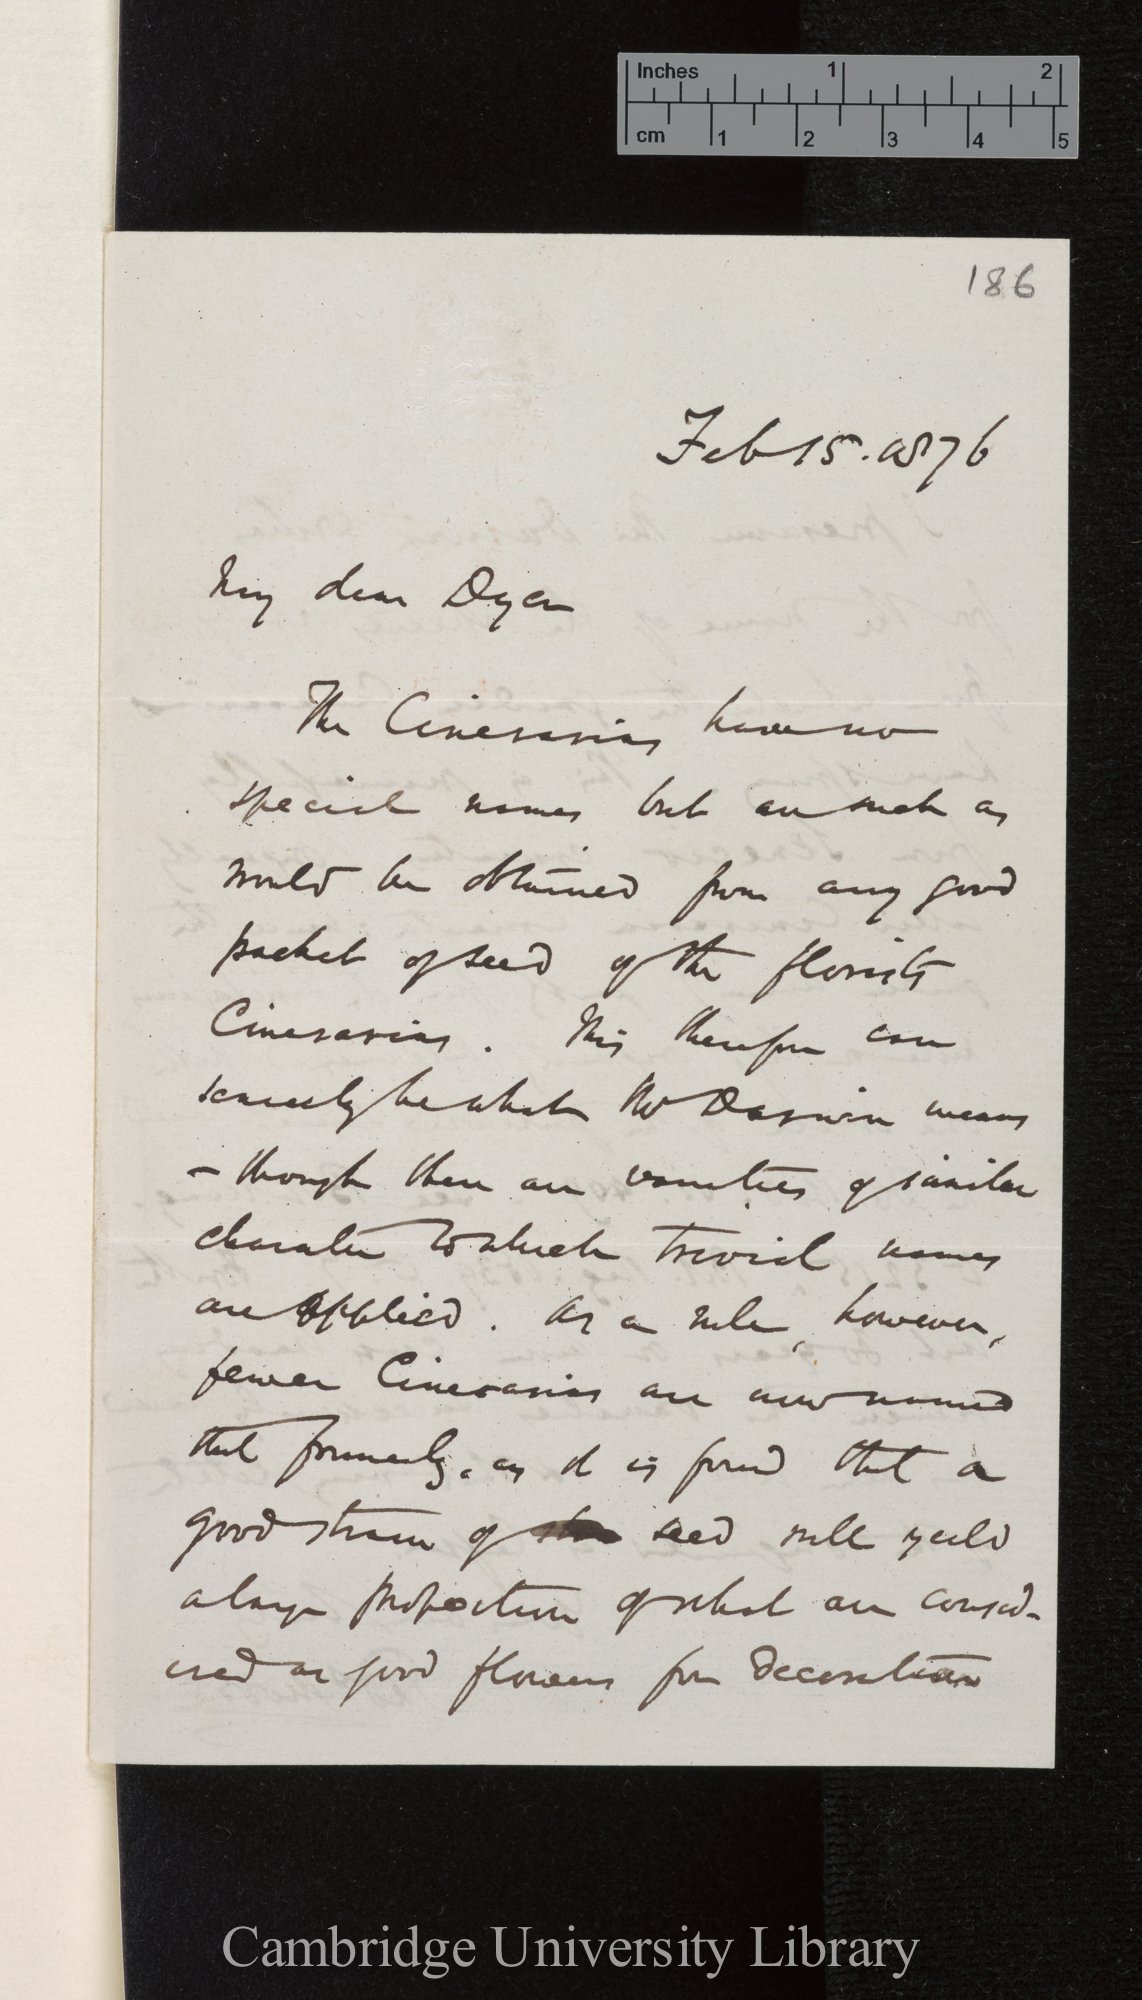 Inches 1 2
cm 1 2 3 4 5
186
Feb 15. 1876
My dear Dyer
The Cinerarias have no
special names but are such as
would be obtained from any good
packet of seed of the florists
Cinerarias. This therefore can
scarcely be what Mr Darwin means
– though there are varieties of similar
character to which trivial names
are applied. As a rule, however,
fewer Cinerarias are now named
that formerly, as it is found that a
good strain of seed will yield
a large proportion of what are consid-
ered as good flowers for decoration
Cambridge University Library